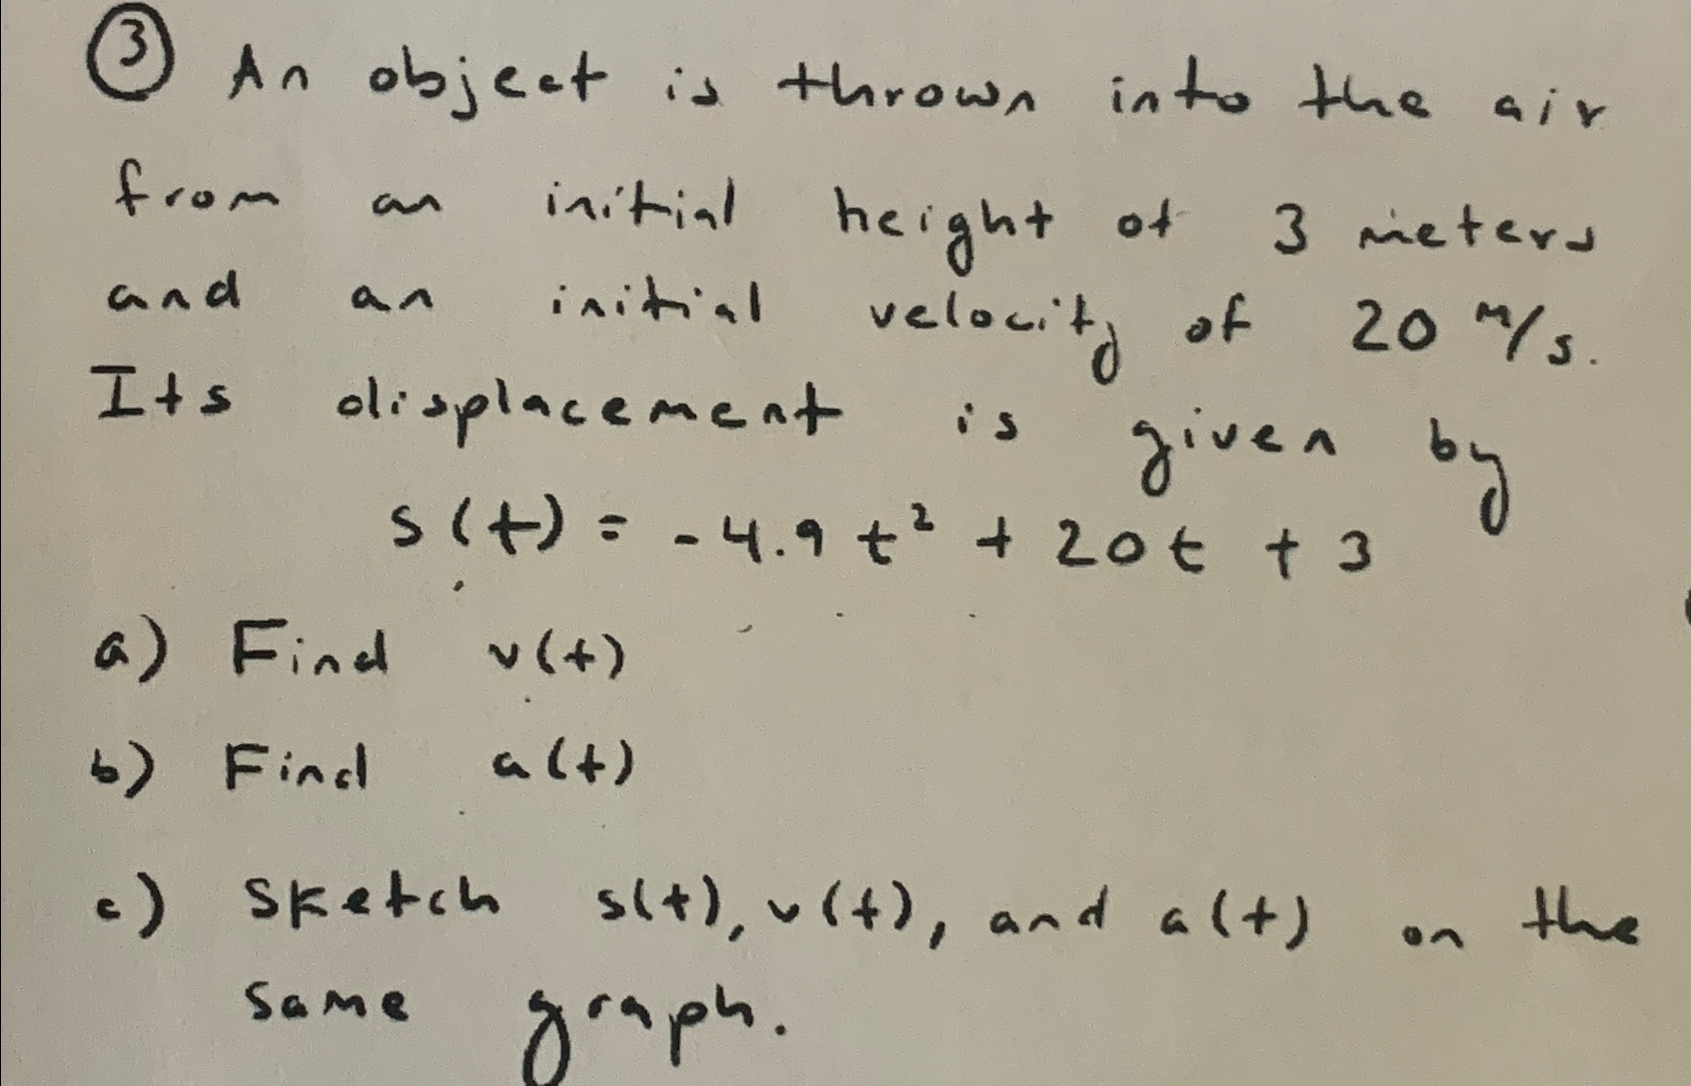 ③ An object is thrown into the air
from an initial height of 3 meters
and an initial velocity of 20 m/s.
Its displacement is given by
s(t) = -4.9t² + 20t + 3
a) Find v(t)
b) Find a(t)
c) Sketch s(t), v(t), and a(t) on the
same graph.